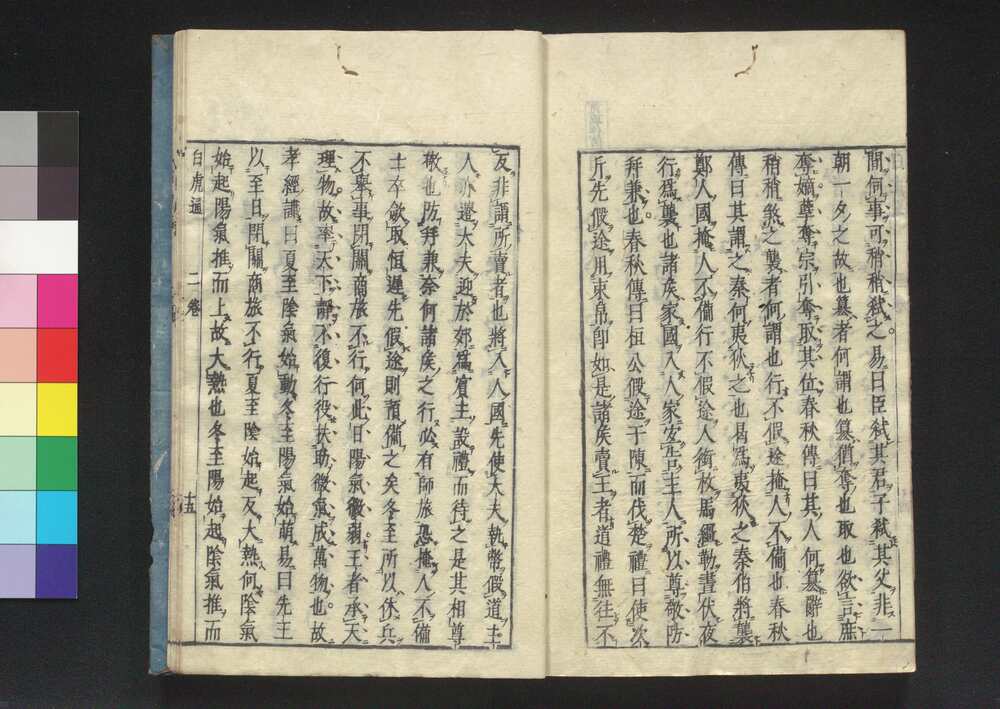 間何事可稍稍弑之易曰臣弑其君子弑其父非一
朝一夕之故也簒者何謂也簒猶奪也取也欲言庶
奪嫡孽奪宗引奪取其位春秋傳曰其人何簒辭也
稍稍煞之襲者何謂也行不假途掩人不備也春秋
傳曰其謂之秦何夷狄之也曷爲夷狄之秦伯將襲
鄭人國掩人不備行不假途人銜枚馬繮勒晝伏夜
行爲襲也諸矦家國入人家宜告主人所以尊敬防
拜兼也春秋傳曰桓公假途于陳而伐楚禮曰使次
斤先假途用束帛卽如是諸矦賣王者道禮無往不
反非謂所賣者也將入人國先使大夫執幣假道主
人亦遣大夫迎於郊爲賓主設禮而待之是其相尊
敬也防拜兼奈何諸矦之行必有師旅恐掩人不備
士卒斂取恒遲先假途則預備之矣冬至所以休兵
不舉事閉關商旅不行何此日陽氣微弱王者承天
理物故率天下靜不復行役扶助微氣成萬物也故
孝經讖曰夏至陰氣始動冬至陽氣始萌易曰先王
以至日閉關商旅不行夏至陰始起反大熱何陰氣
始起陽氣推而上故大熱也冬至陽始起陰氣推而
白虎通 二卷 十五